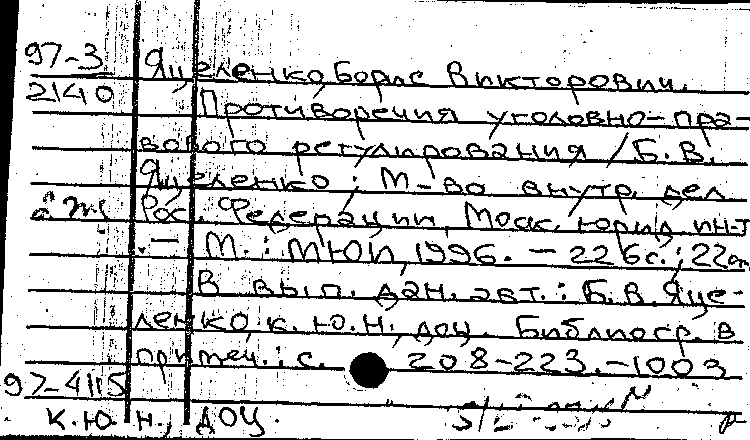 97-3 Яцеленко, Борис Викторович.
2140 Противоречия уголовно-пра-
вового регулирования / Б. В.
Яцеленко ; М-во внутр. дел
Рос. Федерации, Моск. юрид. ин-т
. — М. : МЮИ, 1996. — 226 с. ; 22 см
В вып. дан. авт.: Б. В. Яце-
ленко, к. ю. н., доц. Библиогр. в
примеч.: с. 208-223. -100э
97-4115
к. ю. н., доц.